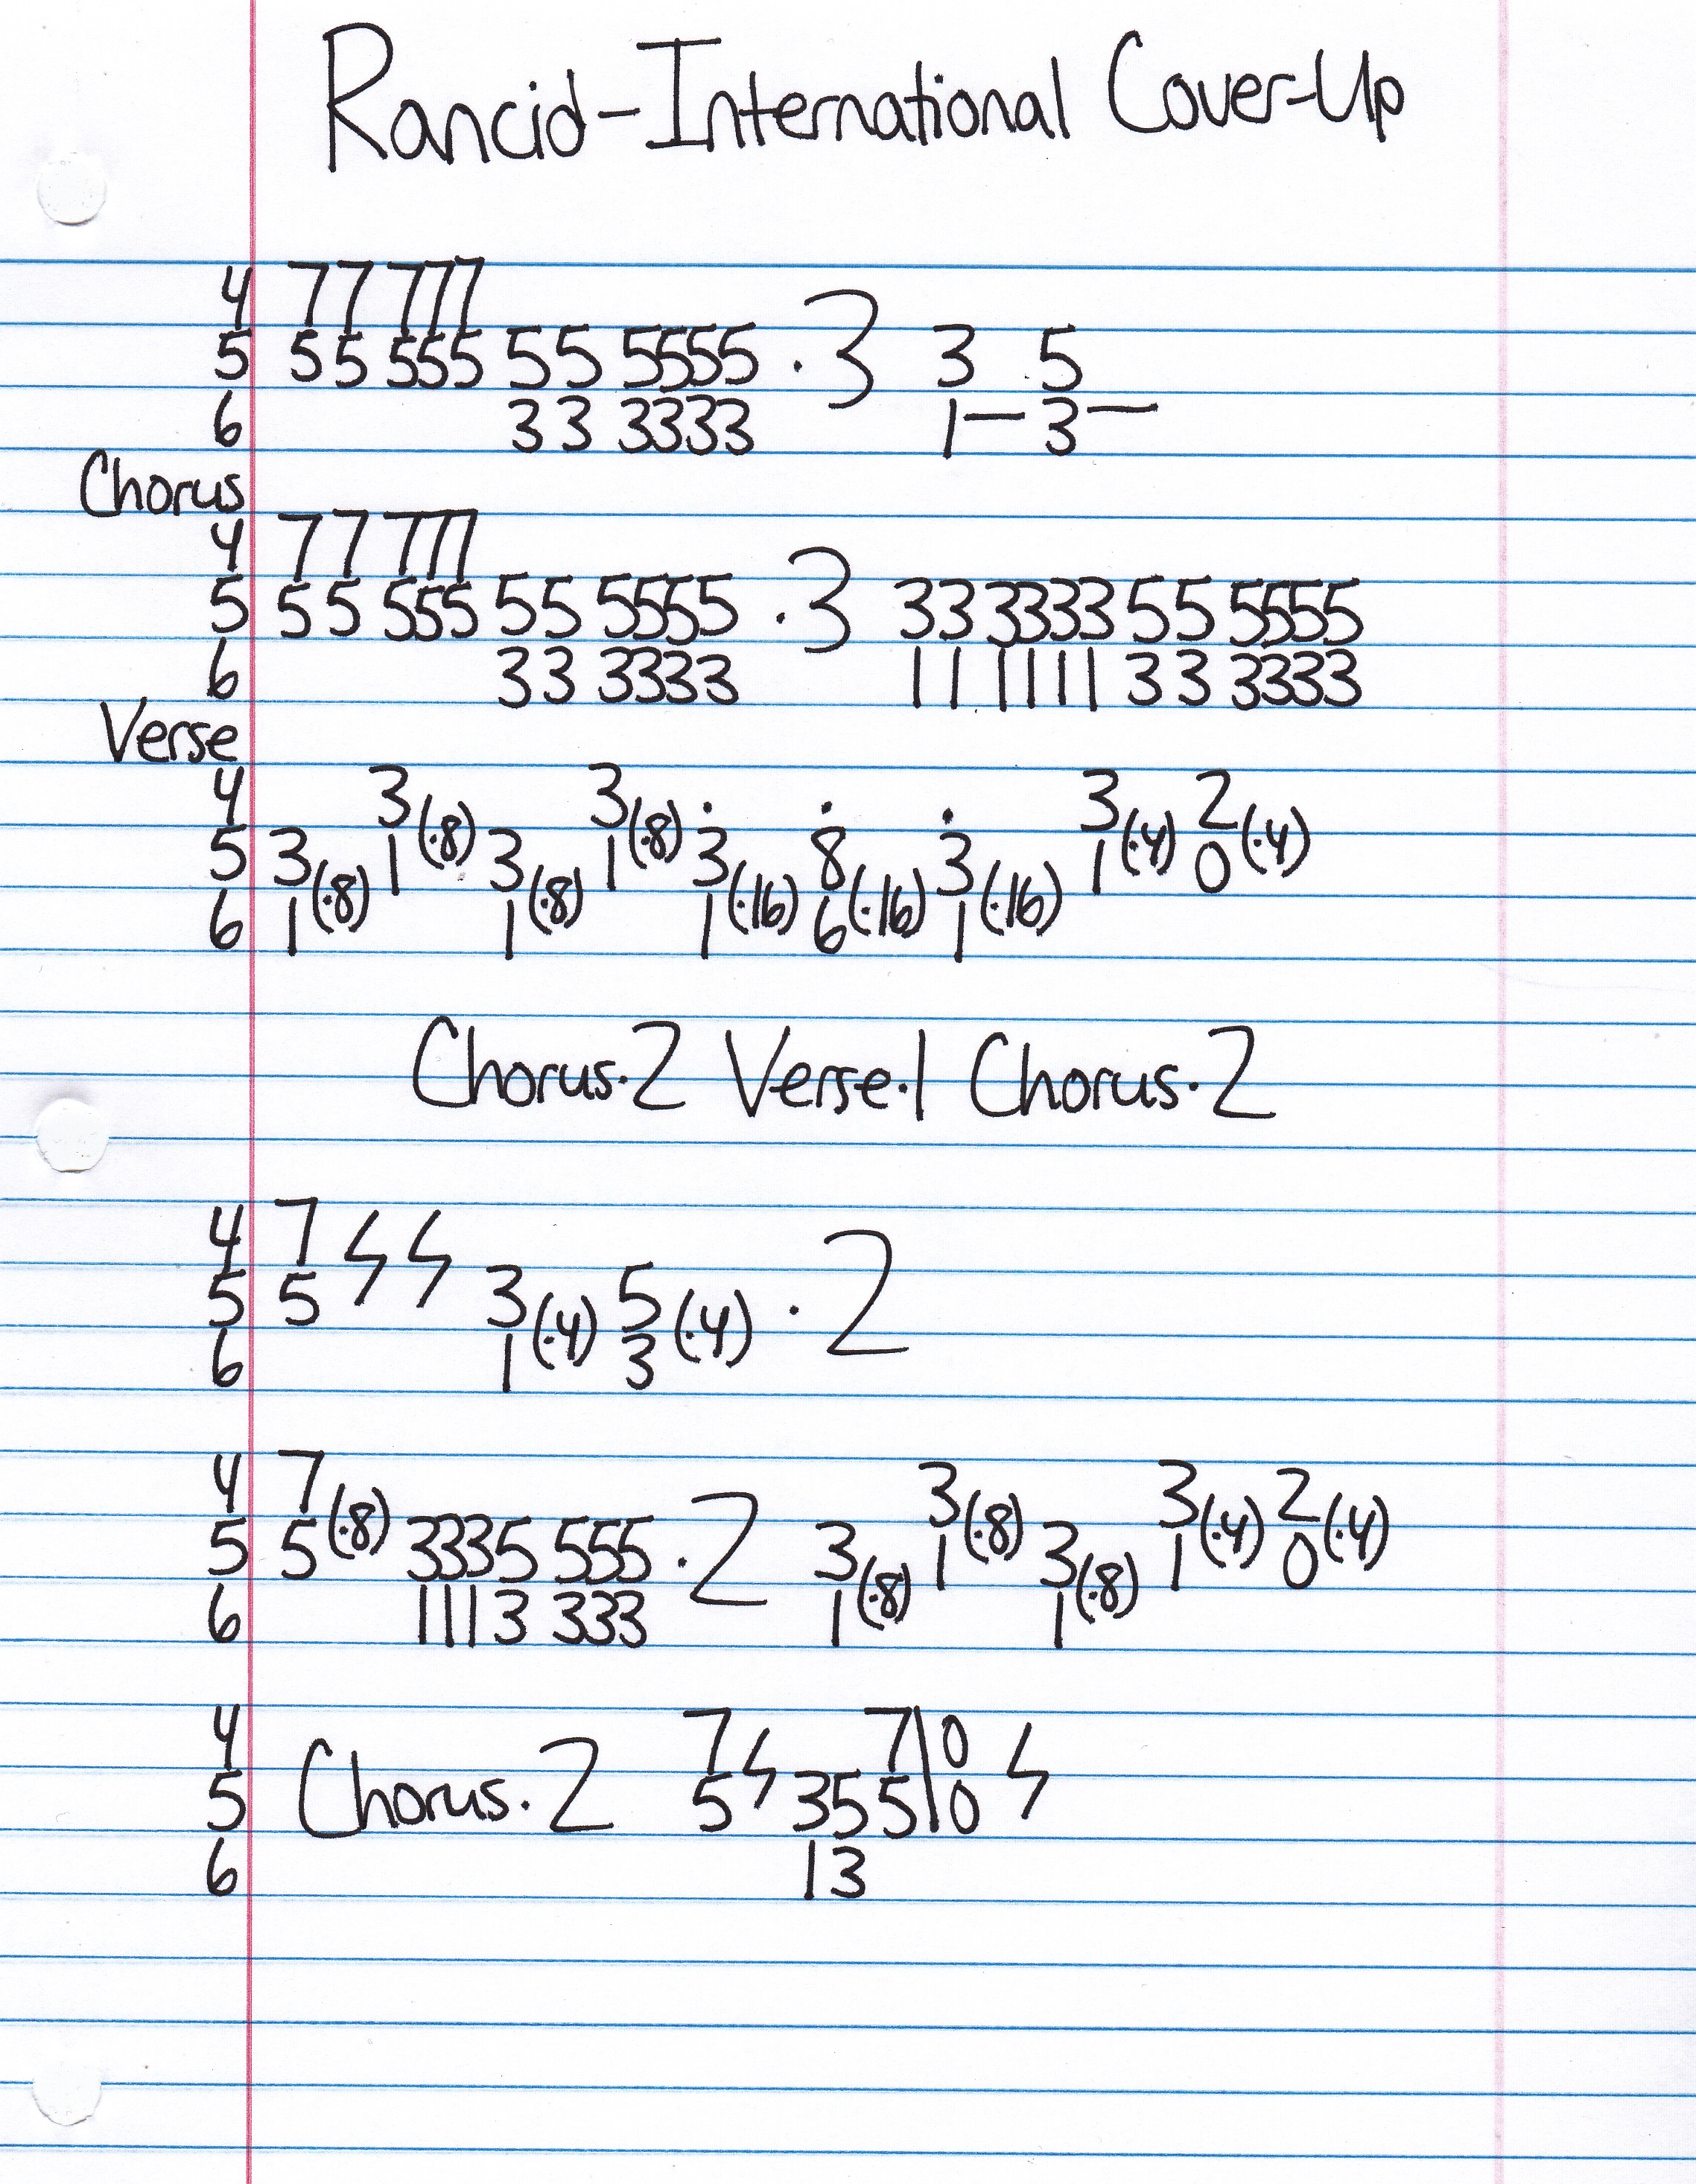 Rancid-International Cover-Up
4 77 777
5 55 555 55 5555 .3 3 5
6 33 3333 1— 3—
Chorus
4 77 777
5 55 555 55 5555 .3 33 3333 55 5555
6 33 3333 11 1111 33 3333
Verse
4 3 (.8) 3 (.8) . . . 3 (.4) 2 (.4)
5 3 (.8) 1 3 (.8) 1 3 (.16) 8 (.16) 3 (.16) 1 0
6 1 1 1 6 1
Chorus.2 Verse.1 Chorus.2
4 7
5 5 3 (.4) 5 (.4) .2
6 1 3
4 7 (.8) 3 (.8) 3 (.4) 2 (.4)
5 5 3335 555 .2 3 (.8) 1 3 (.8) 1 0
6 1113 333 1 1
4 7 7|0
5 Chorus.2 5 355|0
6 13